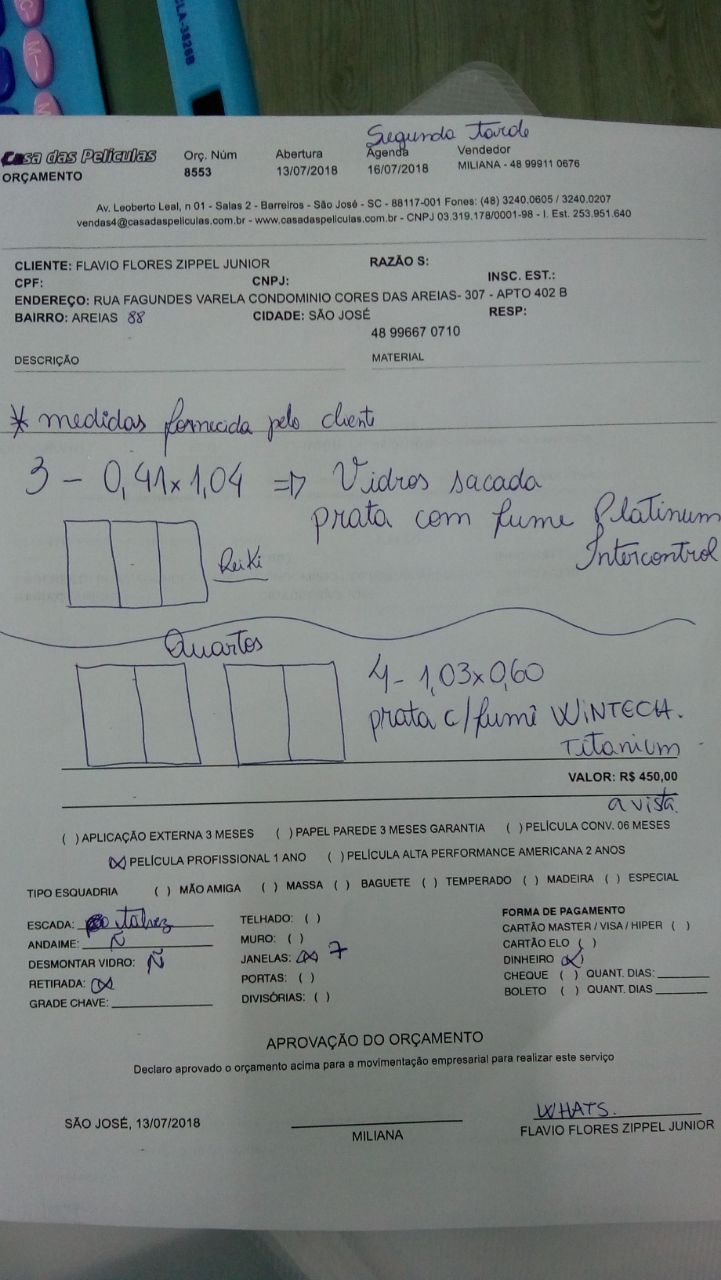 CLA-3826B
Segunda Tarde
Casa das Películas Orç. Núm Abertura Agenda Vendedor
ORÇAMENTO 8553 13/07/2018 16/07/2018 MILIANA - 48 99911 0676
Av. Leoberto Leal, n 01 - Salas 2 - Barreiros - São José - SC - 88117-001 Fones: (48) 3240.0605 / 3240.0207
vendas4@casadaspeliculas.com.br - www.casadaspeliculas.com.br - CNPJ 03.319.178/0001-98 - I. Est. 253.951.640
CLIENTE: FLAVIO FLORES ZIPPEL JUNIOR RAZÃO S:
CPF: CNPJ: INSC. EST.:
ENDEREÇO: RUA FAGUNDES VARELA CONDOMINIO CORES DAS AREIAS- 307 - APTO 402 B
BAIRRO: AREIAS 88 CIDADE: SÃO JOSÉ RESP:
48 99667 0710
DESCRIÇÃO MATERIAL
* medidas fornecida pelo client
3 - 0,41x1,04 => Vidros sacada
prata com fume Platinum
Intercontrol
ReiKi
Quartos
4 - 1,03x0,60
prata c/fumê WiNTECH.
Titanium
VALOR: R$ 450,00
a vista.
( ) APLICAÇÃO EXTERNA 3 MESES ( ) PAPEL PAREDE 3 MESES GARANTIA ( ) PELÍCULA CONV. 06 MESES
(X) PELÍCULA PROFISSIONAL 1 ANO ( ) PELÍCULA ALTA PERFORMANCE AMERICANA 2 ANOS
TIPO ESQUADRIA ( ) MÃO AMIGA ( ) MASSA ( ) BAGUETE ( ) TEMPERADO ( ) MADEIRA ( ) ESPECIAL
ESCADA: talvez TELHADO: ( ) FORMA DE PAGAMENTO
ANDAIME: Ñ MURO: ( ) CARTÃO MASTER / VISA / HIPER ( )
DESMONTAR VIDRO: Ñ JANELAS: (X) 7 CARTÃO ELO ( )
RETIRADA: (X) PORTAS: ( ) DINHEIRO (X)
GRADE CHAVE: DIVISÓRIAS: ( ) CHEQUE ( ) QUANT. DIAS:
BOLETO ( ) QUANT. DIAS
APROVAÇÃO DO ORÇAMENTO
Declaro aprovado o orçamento acima para a movimentação empresarial para realizar este serviço
WHATS.
SÃO JOSÉ, 13/07/2018 MILIANA FLAVIO FLORES ZIPPEL JUNIOR